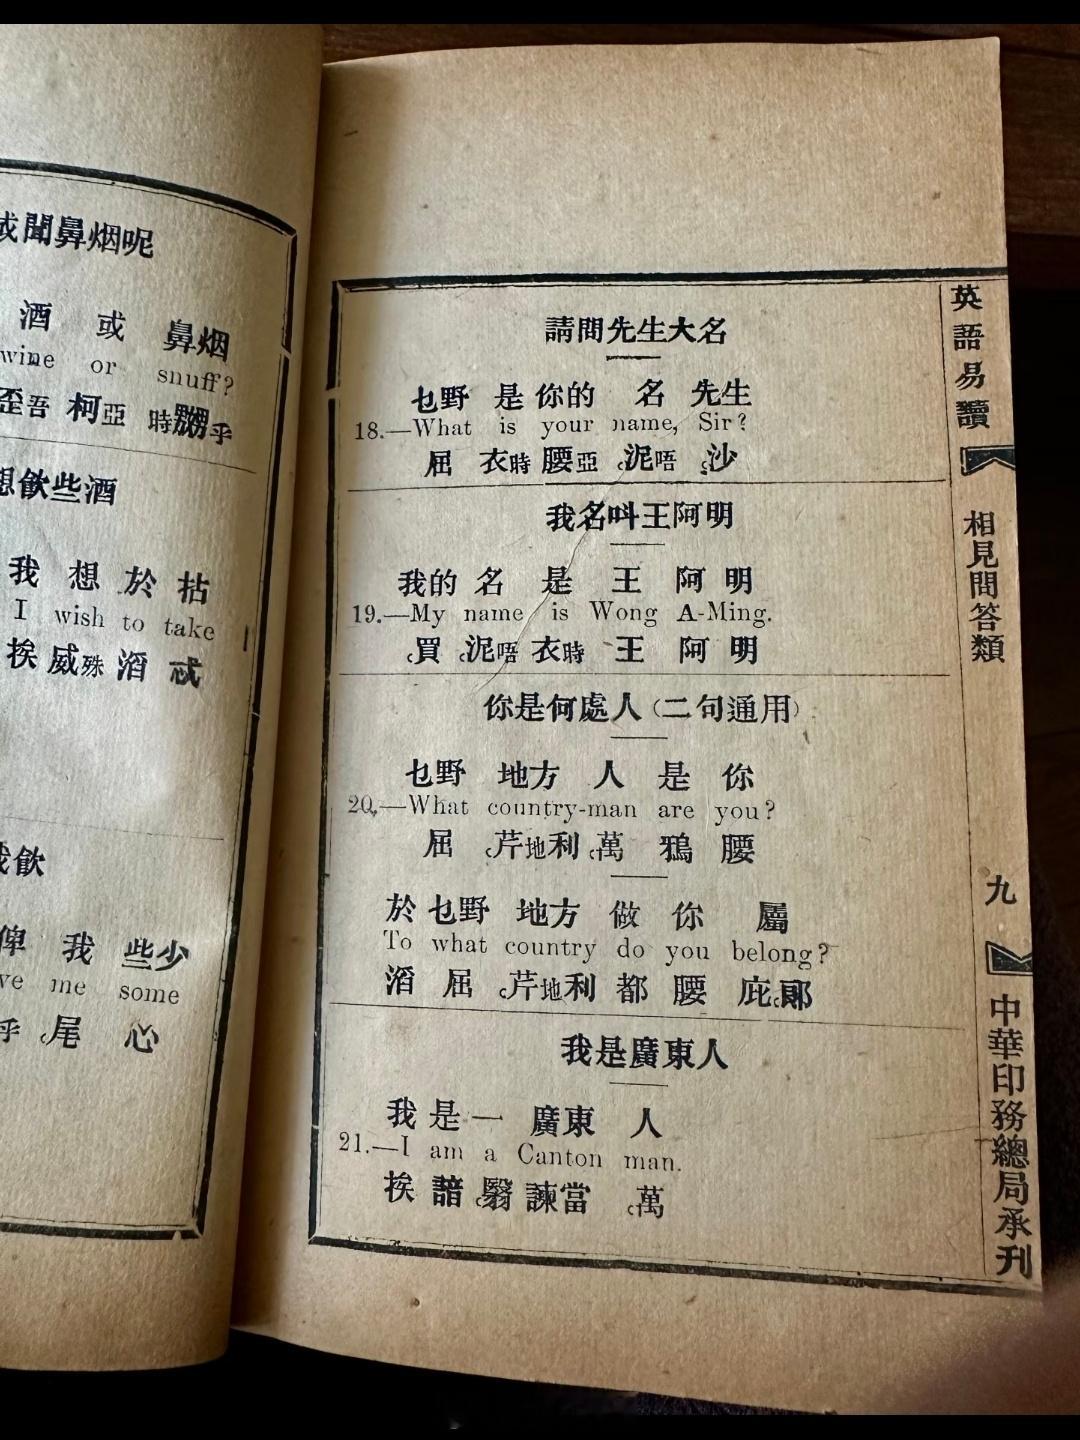 或聞鼻烟呢
酒 或 鼻烟
wine or snuff?
歪吾 柯亞 時嬲乎
想飲些酒
我 想 於 拈
I wish to take
挨 威殊 滔 忒
我飲
俾 我 些少
me some
乎 尾 心
請問先生大名
乜野 是 你的 名 先生
18.—What is your name, Sir?
屈 衣時 腰亞 泥唔 沙
我名叫王阿明
我的 名 是 王 阿 明
19.—My name is Wong A-Ming.
買 泥唔 衣時 王 阿 明
你是何處人(二句通用)
乜野 地方 人 是 你
20.—What country-man are you?
屈 芹地利 萬 鴉 腰
於 乜野 地方 做 你 屬
To what country do you belong?
滔 屈 芹地利 都 腰 庇郞
我是廣東人
我 是 一 廣東 人
21.—I am a Canton man.
挨 諳 翳 諫當 萬
英語易讀
相見問答類
九
中華印務總局承刊